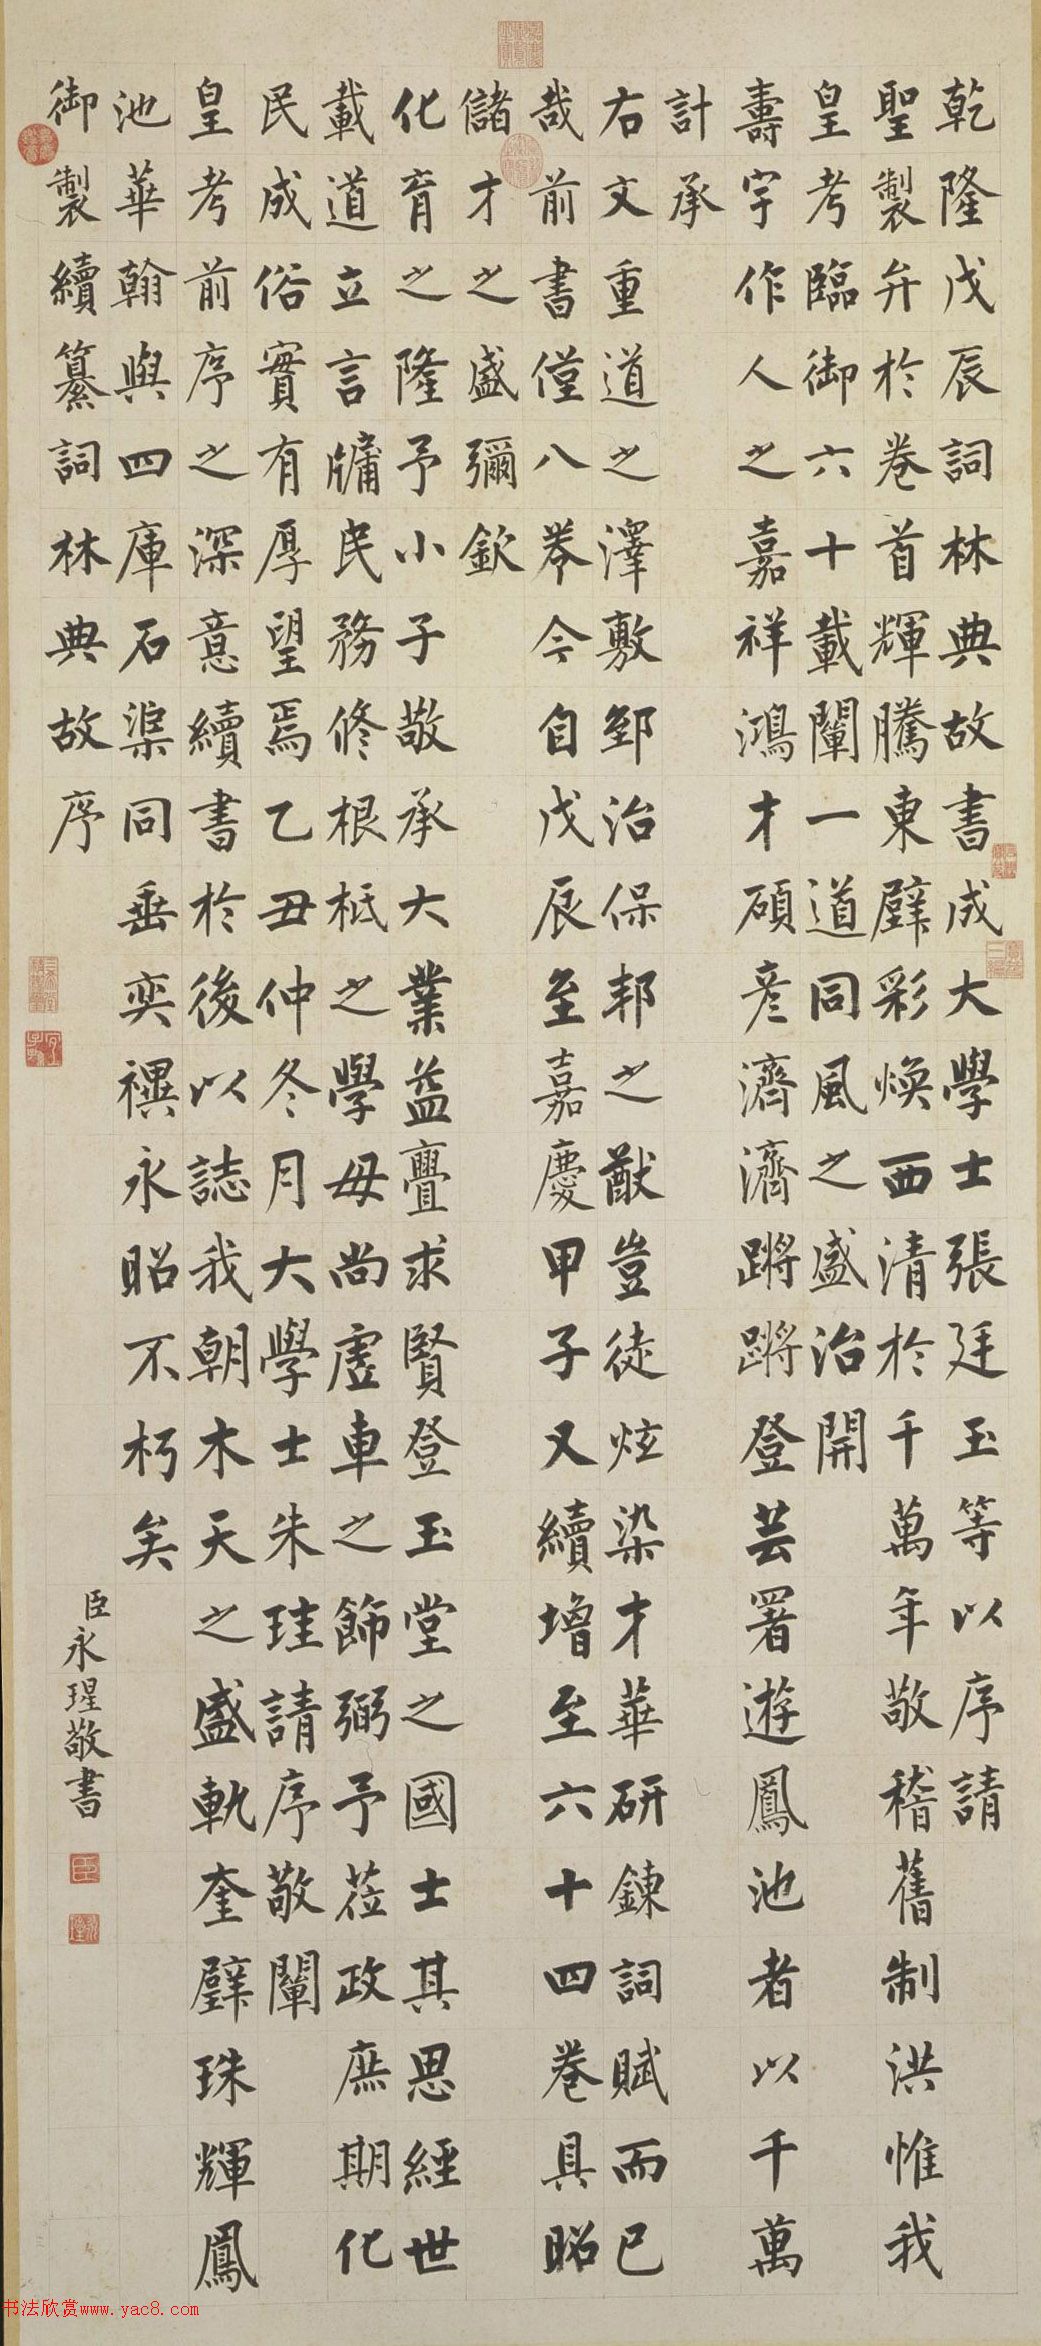 乾隆戊辰詞林典故書成大學士張廷玉等以序請
聖製弁於卷首輝騰東壁彩煥西清於千萬年敬稽舊制洪惟我
皇考臨御六十載闡一道同風之盛治開
壽宇作人之嘉祥鴻才碩彥濟濟蹡蹡登芸署遊鳳池者以千萬
計承
右文重道之澤敷郅治保邦之猷豈徒炫染才華研鍊詞賦而已
哉前書僅八卷今自戊辰至嘉慶甲子又續增至六十四卷具昭
儲才之盛彌欽
化育之隆予小子敬承大業益亹求賢登玉堂之國士其思經世
載道立言牖民務修根柢之學毋尚虛車之飾弼予莅政庶期化
民成俗實有厚望焉乙丑仲冬月大學士朱珪請序敬闡
皇考前序之深意續書於後以誌我朝木天之盛軌奎璧珠輝鳳
池華翰與四庫石渠同垂奕禩永昭不朽矣
御製續纂詞林典故序
臣永瑆敬書
书法欣赏www.yac8.com